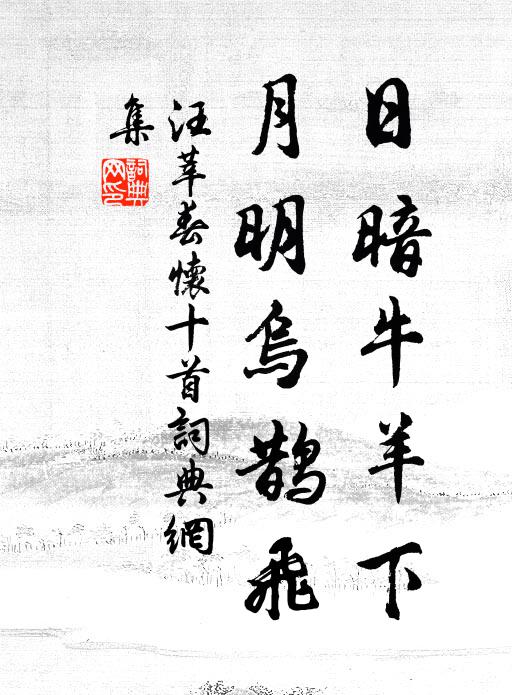 日暗牛羊下
月明烏鵲飛
汪莘春懷十首詞典網
集
詞典
网印